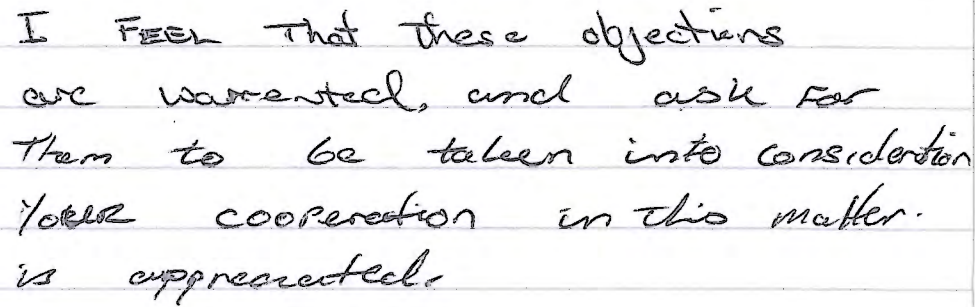 I FEEL That these objections
are warrented, and ask For
Them to be taken into consideration
Your cooperation in this matter.
is appreciated.